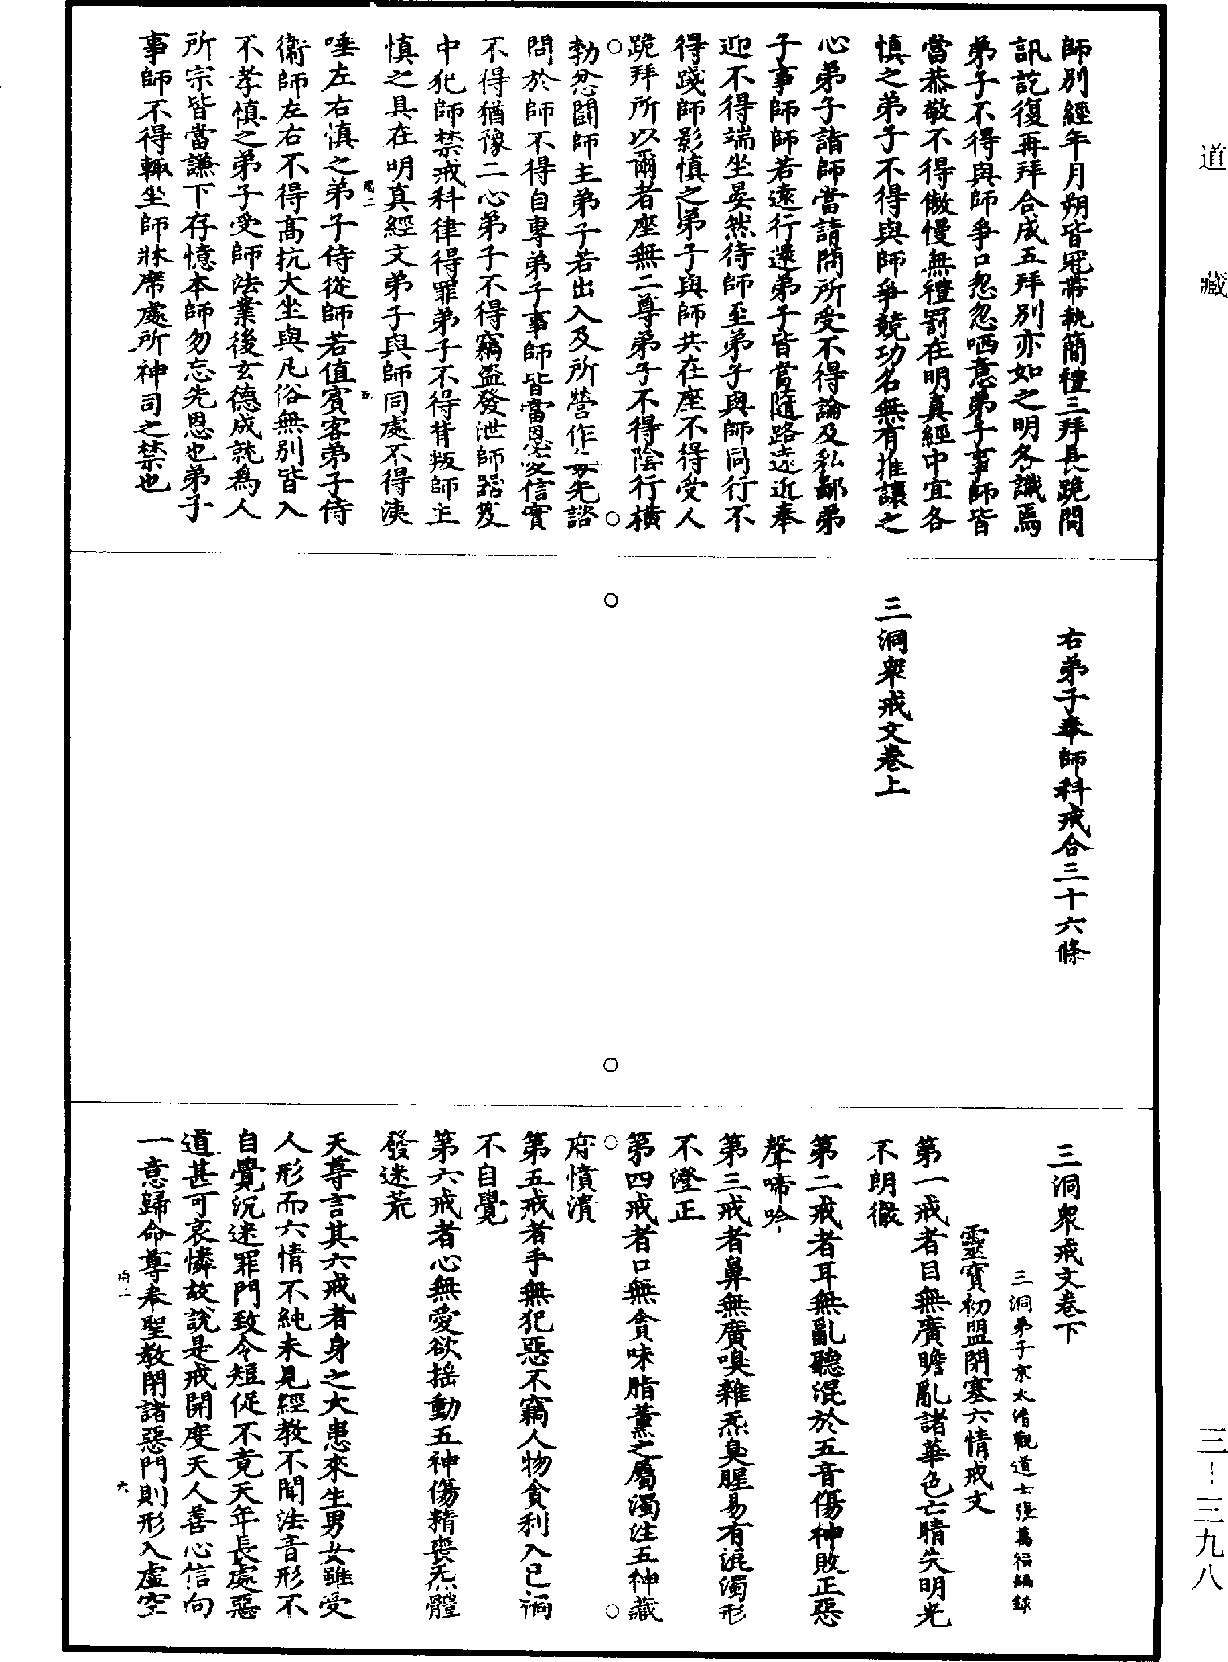 道藏
師別經年月朔皆冠帶執簡禮三拜長跪問
訊訖復再拜合成五拜別亦如之明各識焉
弟子不得與師爭口忽忽哂意弟子事師皆
當恭敬不得傲慢無禮罰在明真經中宜各
慎之弟子不得與師爭競功名無有推讓之
心弟子請師當請問所受不得論及私鄙弟
子事師師若遠行還弟子皆當隨路遠近奉
迎不得端坐晏然待師至弟子與師同行不
得踐師影慎之弟子與師共在座不得受人
跪拜所以爾者座無二尊弟子不得陰行橫
勃忿鬭師主弟子若出入及所營作皆先諮
問於師不得自專弟子事師皆當恩愛信實
不得猶豫二心弟子不得竊盜發泄師器笈
中犯師禁戒科律得罪弟子不得背叛師主
慎之具在明真經文弟子與師同處不得洟
唾左右慎之弟子侍從師若值賓客弟子侍
衛師左右不得高抗大坐與凡俗無別皆入
不孝慎之弟子受師法業後玄德成就為人
所宗皆當謙下存憶本師勿忘先恩也弟子
事師不得輒坐師牀席處所神司之禁也
右弟子奉師科戒合三十六條
三洞衆戒文卷上
三洞衆戒文卷下
三洞弟子京太清觀道士張萬福編録
靈寶初盟閉塞六情戒文
第一戒者目無廣瞻亂諸華色亡睛失明光
不朗徹
第二戒者耳無亂聽混於五音傷神敗正惡
聲啼吟
第三戒者鼻無廣嗅雜炁臭腥易有混濁形
不澄正
第四戒者口無貪味脂薰之屬濁注五神藏
府憒潰
第五戒者手無犯惡不竊人物貪利入已禍
不自覺
第六戒者心無愛欲搖動五神傷精喪炁體
發迷荒
天尊言其六戒者身之大患來生男女雖受
人形而六情不純未見經教不聞法音形不
自覺沉迷罪門致令短促不竟天年長處惡
道甚可哀憐故說是戒開度天人善心信向
一意歸命尊奉聖教閉諸惡門則形入虛空
三一三九八